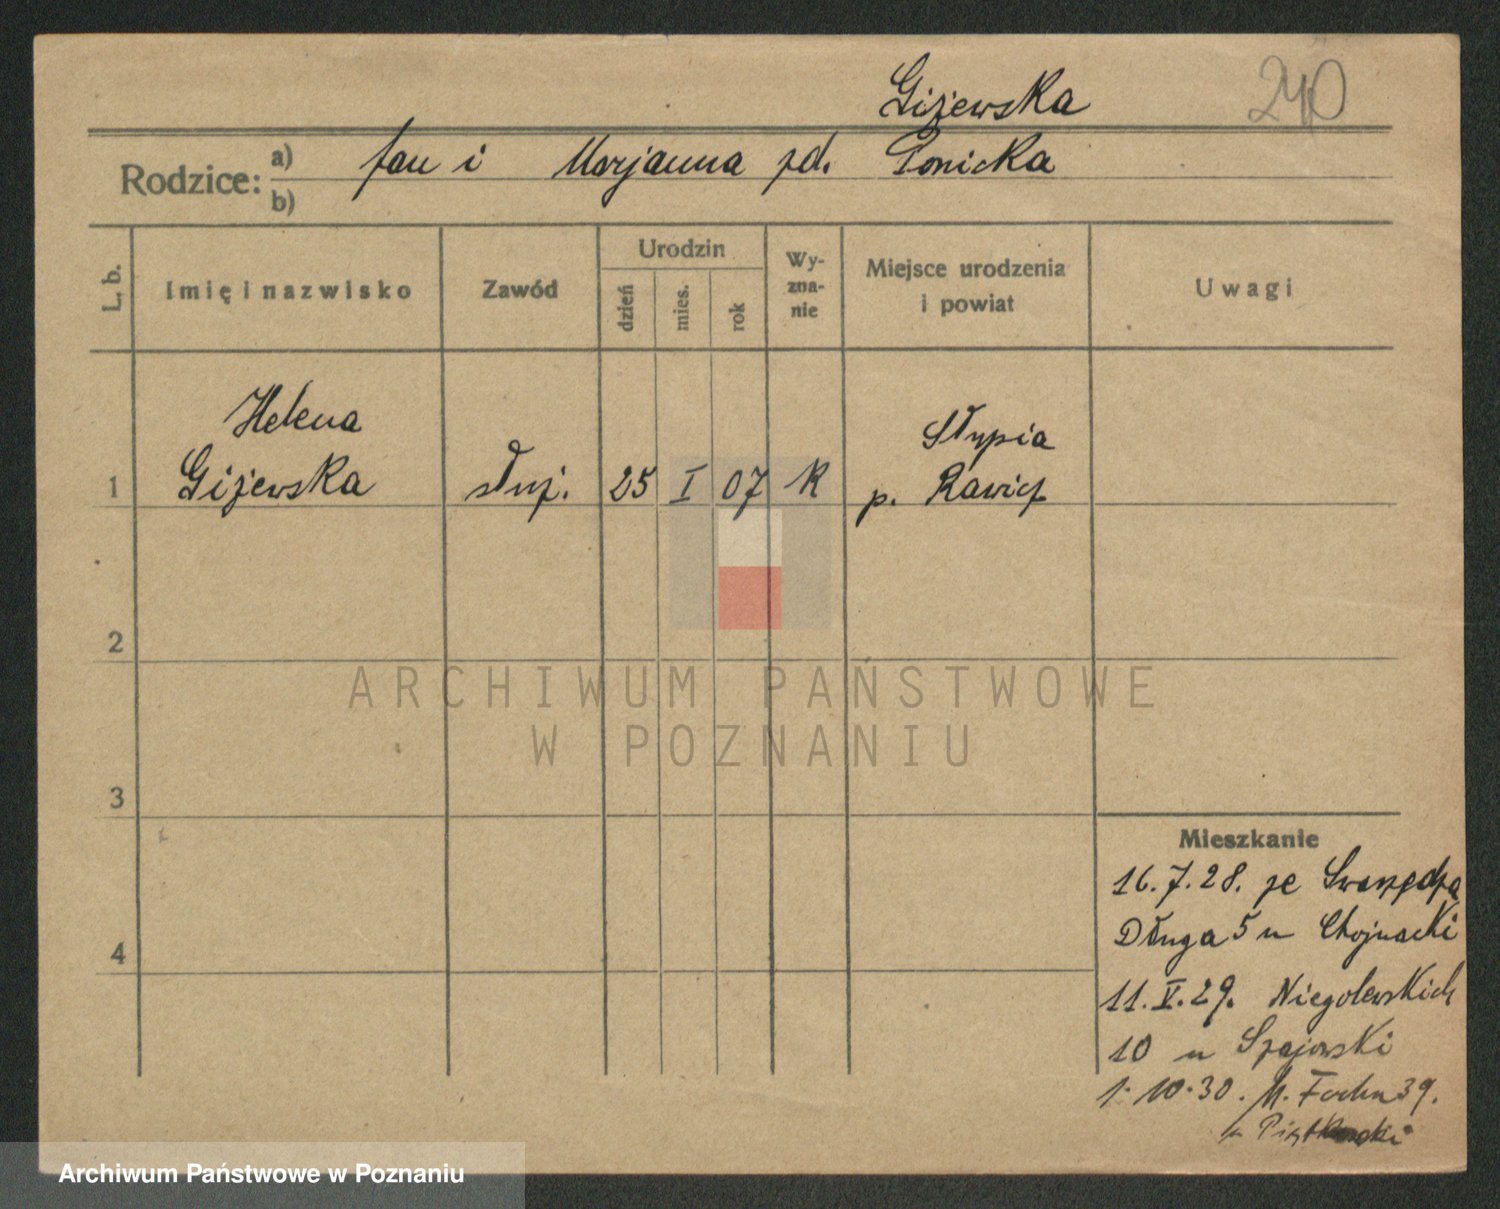 Giżewska
240
Rodzice: a) Jan i Marjanna zd. Ponicka
b)
L. b.
Imię i nazwisko
Zawód
Urodzin
dzień
mies.
rok
Wy-
zna-
nie
Miejsce urodzenia
i powiat
Uwagi
Helena
1 Giżewska służ. 25 I 07 R
Słupia
p. Rawicz
2
3
4
ARCHIWUM PAŃSTWOWE
W POZNANIU
Mieszkanie
16.7.28. ze Swarzędza
Długa 5 u Chojnacki
11.V.29. Niegolewskich
10 u Szajowski
1.10.30. M. Focha 39.
u
Archiwum Państwowe w Poznaniu